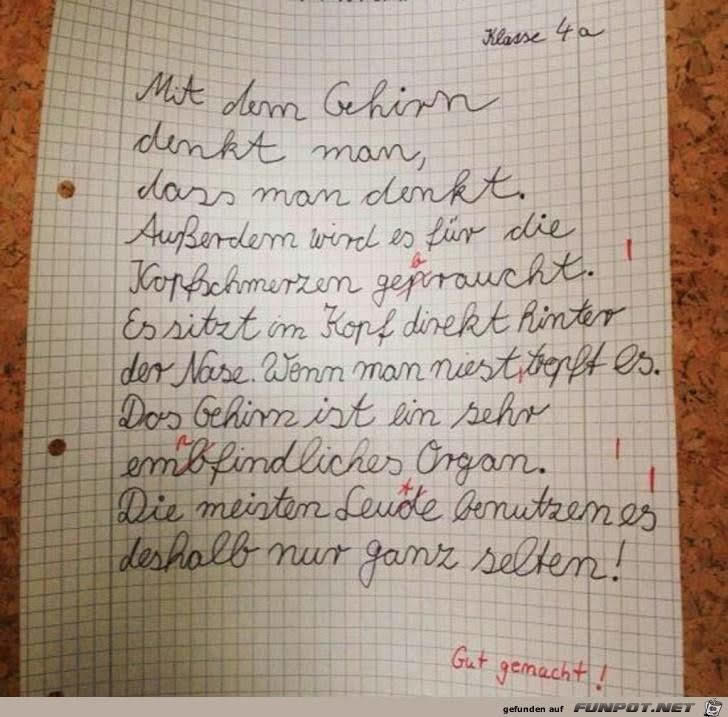 Klasse 4a
Mit dem Gehirn
denkt man,
dass man denkt.
Außerdem wird es für die
Kopfschmerzen gepraucht.
b
Es sitzt im Kopf direkt hinter
der Nase. Wenn man niest, tropft es.
Das Gehirn ist ein sehr
embfindliches Organ.
p
Die meisten Leude benutzen es
t
deshalb nur ganz selten!
Gut gemacht!
gefunden auf FUNPOT.NET